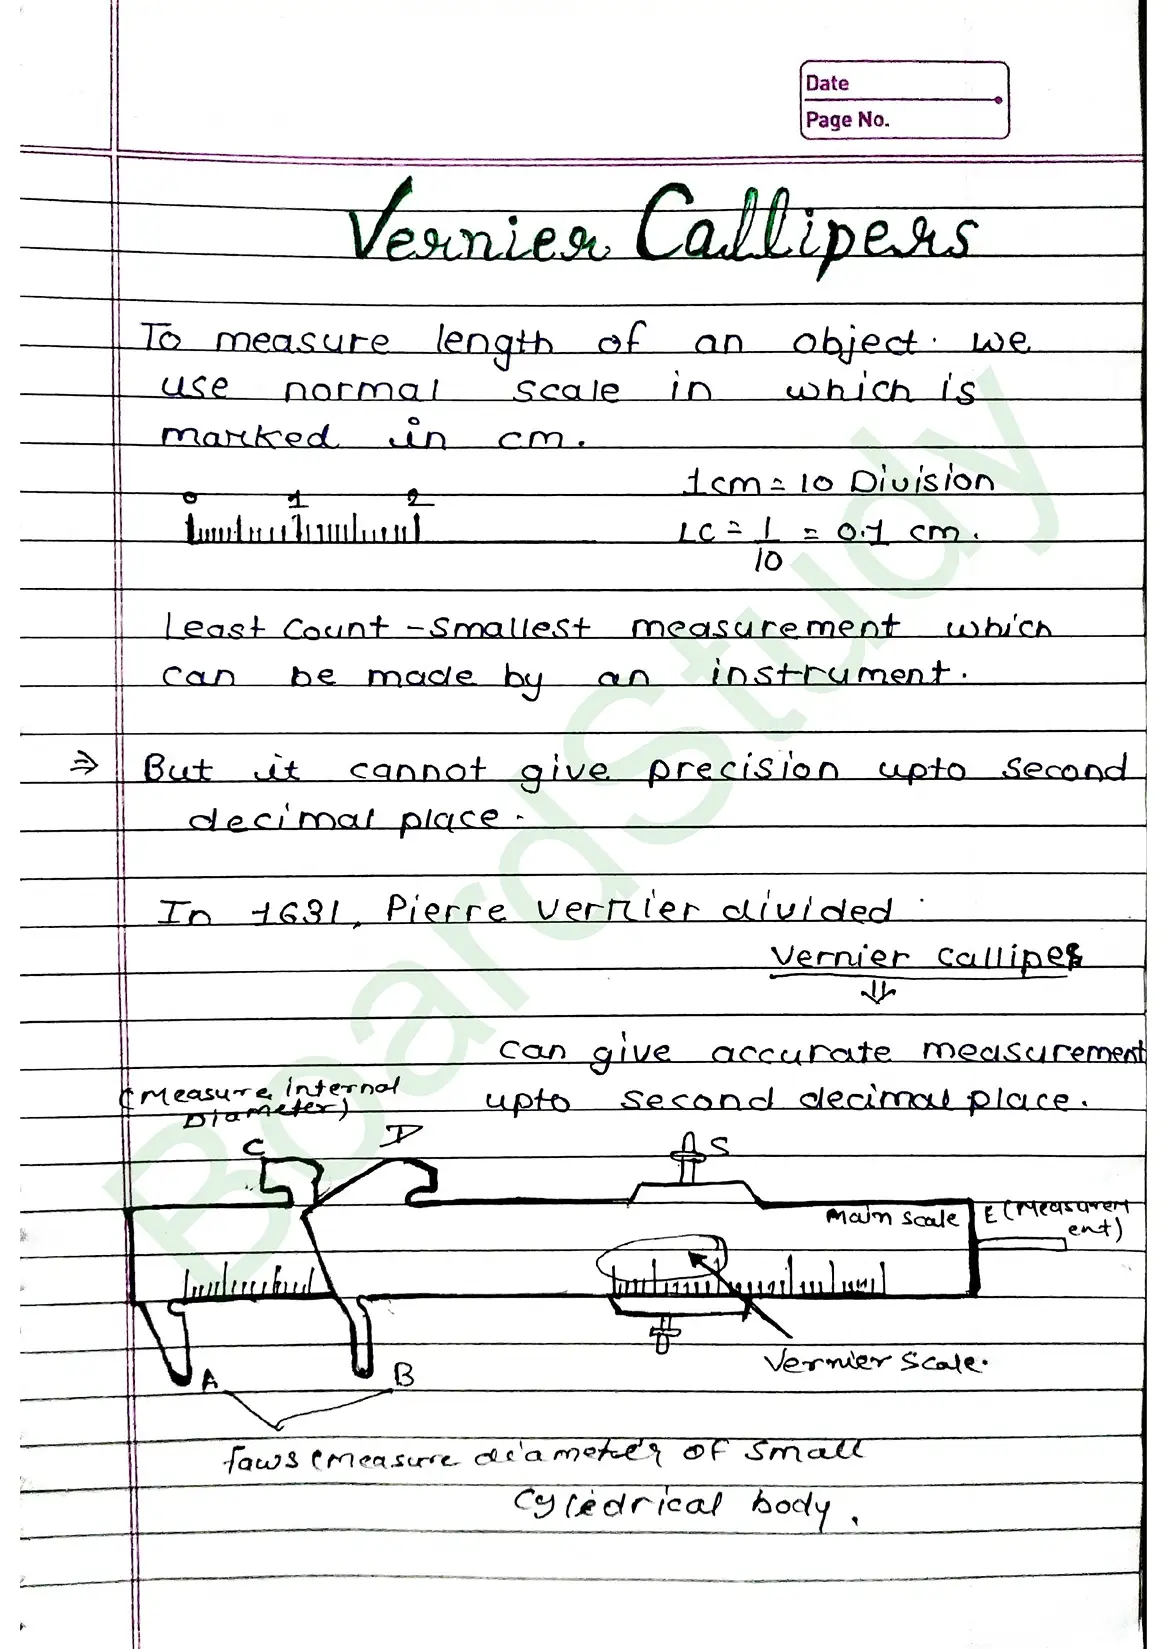 Date
Page No.
Vernier Callipers
To measure length of an object. we
use normal scale in which is
marked in cm.
0 1 2
1cm = 10 Division
LC = 1/10 = 0.1 cm.
Least Count - Smallest measurement which
can be made by an instrument.
⇒ But it cannot give precision upto second
decimal place.
In 1631, Pierre Vernier divided
Vernier Callipes
⇓
can give accurate measurement
upto second decimal place.
(Measure internal
Diameter)
C D S
Main Scale E (Measurem
ent)
Vernier Scale.
A B
Jaws (Measure diameter of small
Cyledrical body.
BoardStudy